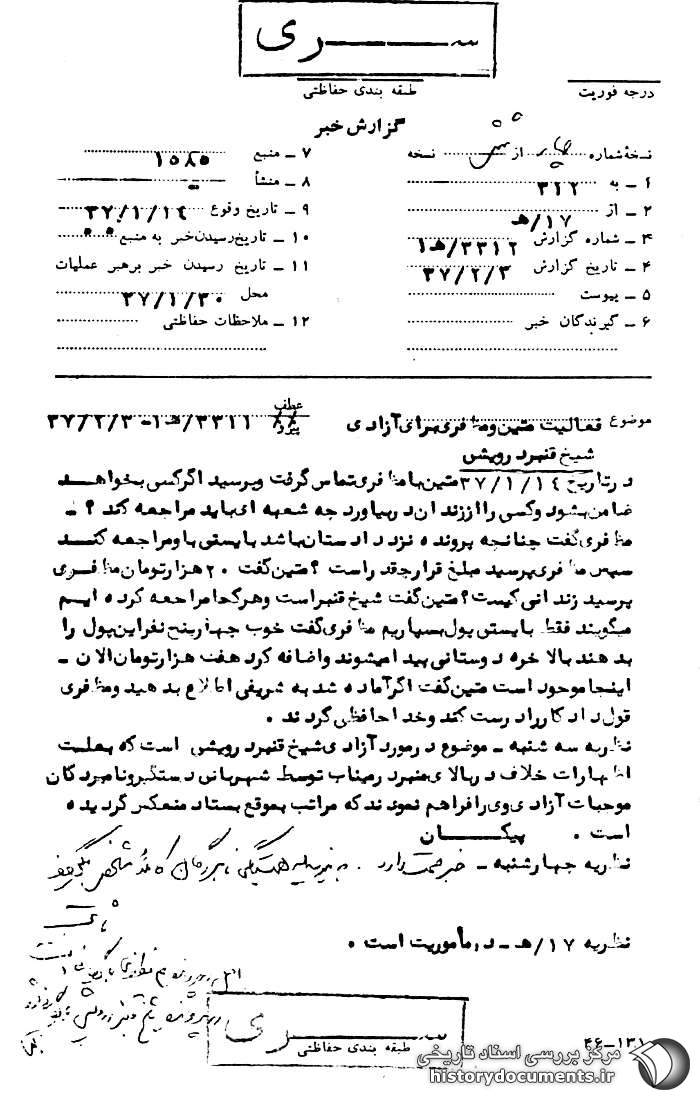 ســـری
طبقه بندی حفاظتی
درجه فوریت
گزارش خبر
نسخهٔ شماره چهار از شش نسخه
۱ ـ به ۳۱۲
۲ ـ از ۱۷/هـ
۳ ـ شماره گزارش ۳۳۱۲/هـ۱
۴ ـ تاریخ گزارش ۳۷/۲/۳
۵ ـ پیوست
۶ ـ گیرندگان خبر
۷ ـ منبع ۱۵۸۵
۸ ـ منشأ ـ
۹ ـ تاریخ وقوع ۳۷/۱/۱۴
۱۰ ـ تاریخ رسیدن خبر به منبع
۱۱ ـ تاریخ رسیدن خبر برهبر عملیات
محل ۳۷/۱/۳۰
۱۲ ـ ملاحظات حفاظتی
موضوع فعالیت متین ومظفری برای آزادی
شیخ قنبردرویش
عطف
پیرو
۳۳۱۱/هـ۱-۳۷/۲/۳
درتاریخ ۳۷/۱/۱۴ متین بامظفری تماس گرفت وپرسید اگرکسی بخواهد
ضامن بشود وکسی را اززندان دربیاورد چه شعبه ای باید مراجعه کند ؟ ـ
مظفری گفت چنانچه پرونده نزد دادستان باشد بایستی باو مراجعه کنـد
سپس مظفری پرسید مبلغ قرارچقدراست ؟ متین گفت ۲۰هزارتومان مظفـری
پرسید زندانی کیست؟ متین گفت شیخ قنبراست وهرکجا مراحعه کرده ایم
میگویند فقط بایستی پول بسپاریم مظفری گفت خوب چهارپنج نفراین پول را
بدهند بالاخره دوستانی پیدامیشوند واضافه کرد هفت هزارتومان الان ـ
اینجاموجود است متین گفت اگرآماده شد به شریفی اطلاع بدهید ومظفری
قول داد کارراد رست کند وخداحافظی گردند .
نظریه سه شنبه ـ موضوع درمورد آزادی شیخ قنبردرویشی است که بعلت
اظهارات خلاف دربالای منبردرمیناب توسط شهربانی دستگیرونامبردگان
موجبات آزادی وی رافراهم نمودندکه مراتب بموقع بستاد منعکس گردیده
است . پیکـــان
نظریه چهارشنبه ـ خبر صحت دارد .
نظریه ۱۷/هـ ـ درمأموریت است .
ســـری
طبقه بندی حفاظتی
۴۶-۱۳۱
مرکز بررسی اسناد تاریخی
historydocuments.ir